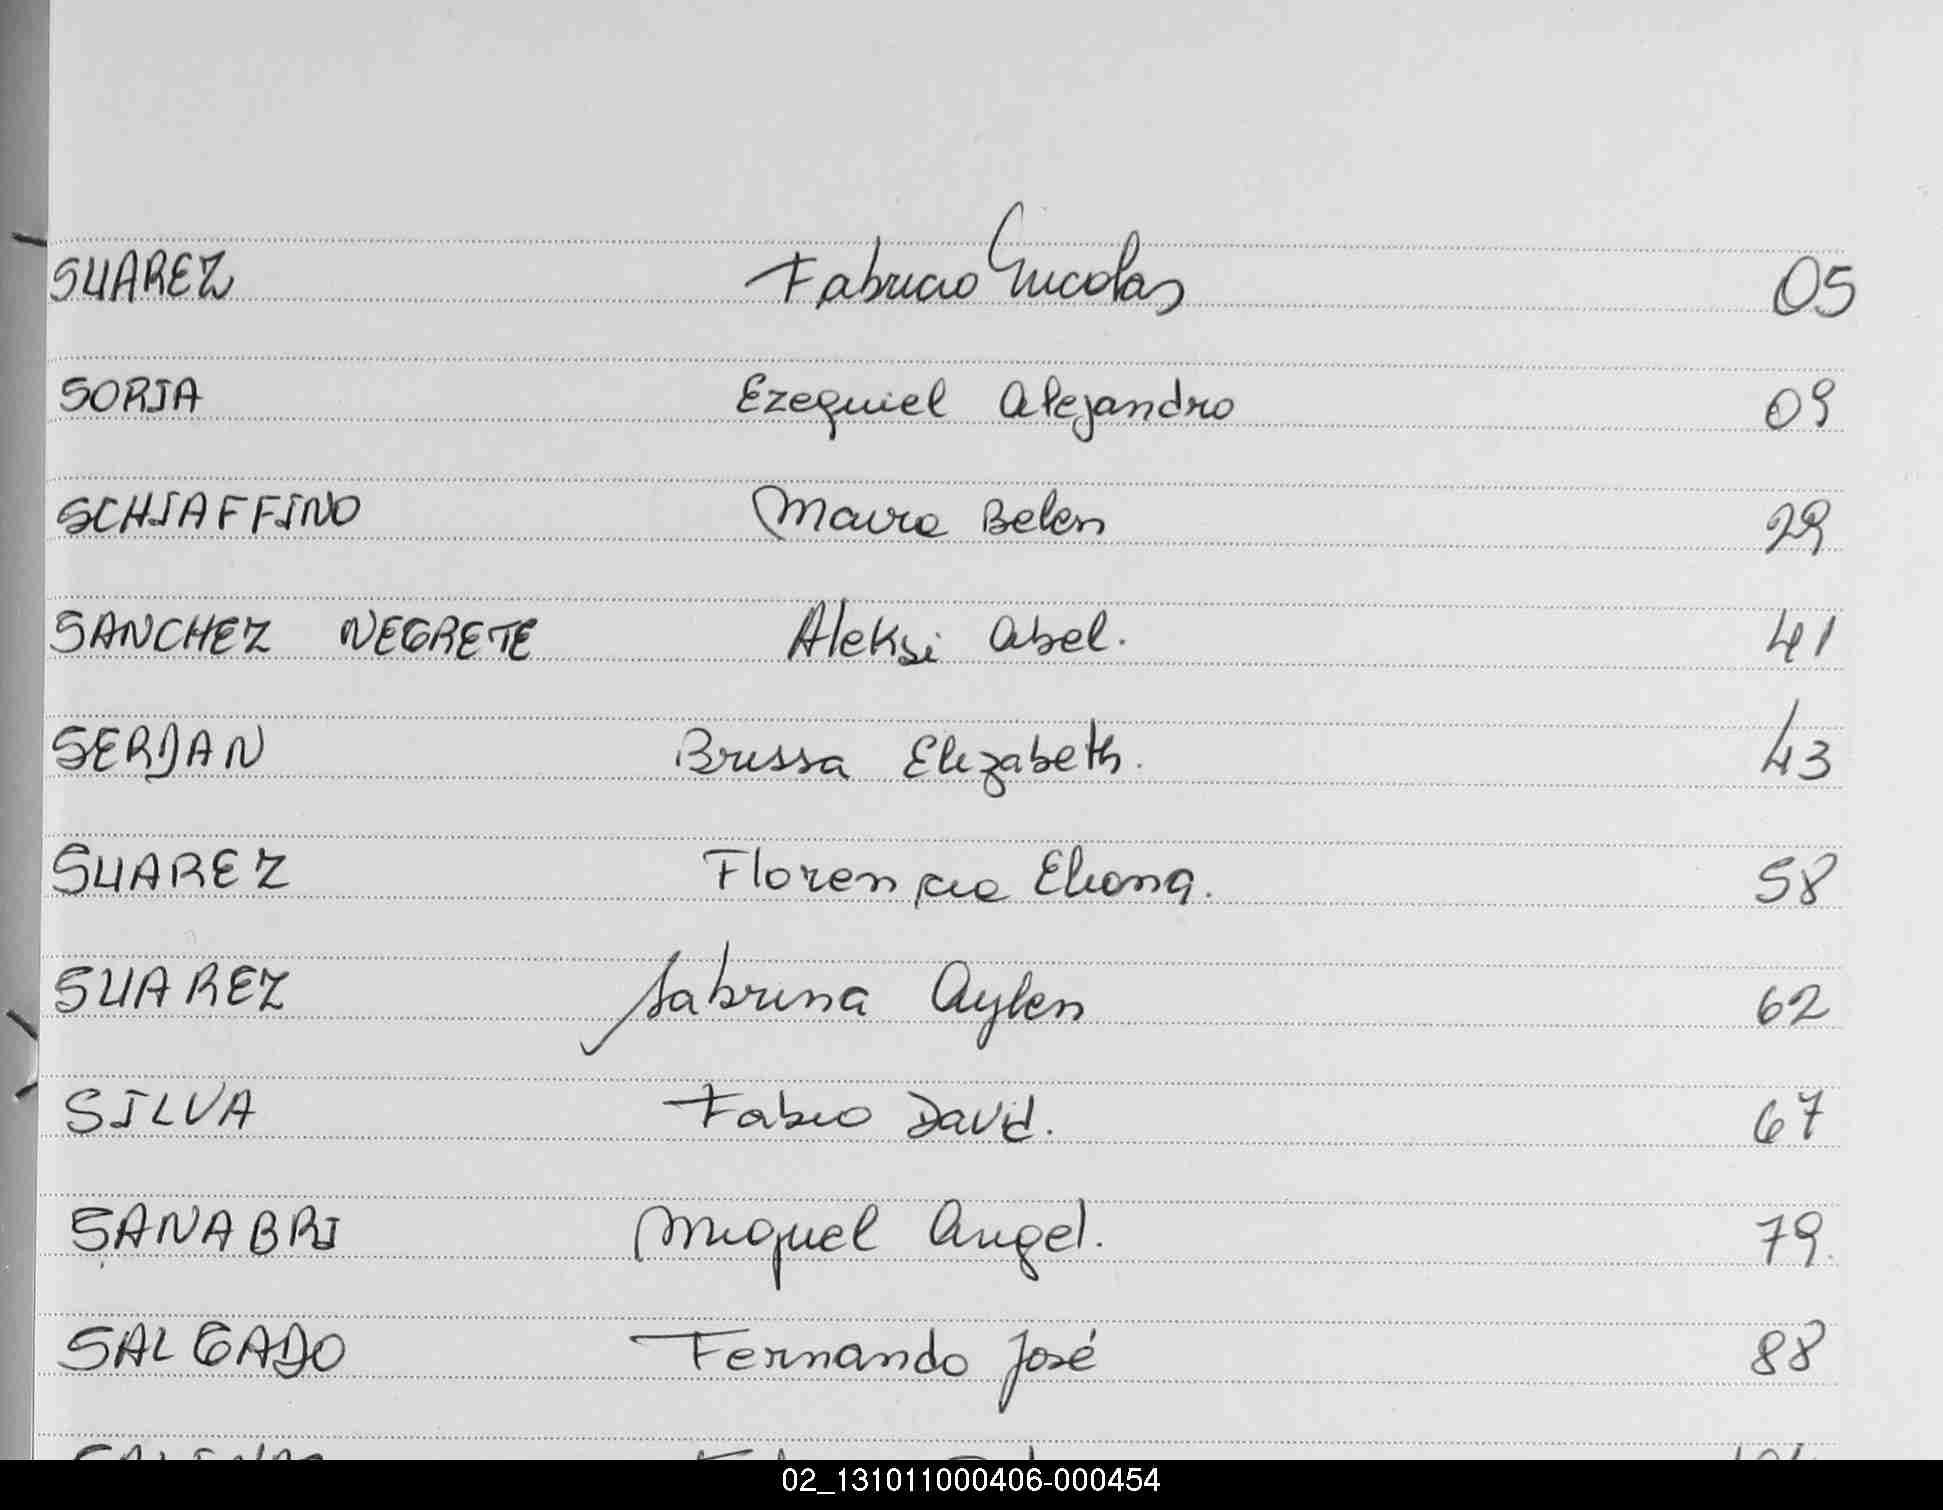 SUAREZ Fabricio Nicolas 05
SORIA Ezequiel Alejandro 09
SCHIAFFINO Maira Belen 29
SANCHEZ NEGRETE Aleksi Abel. 41
SERJAN Brissa Elizabeth. 43
SUAREZ Florencia Eliana. 58
SUAREZ Sabrina Aylen 62
SILVA Fabio David. 67
SANABRI Miguel Angel. 79.
SALGADO Fernando José 88
02_131011000406-000454